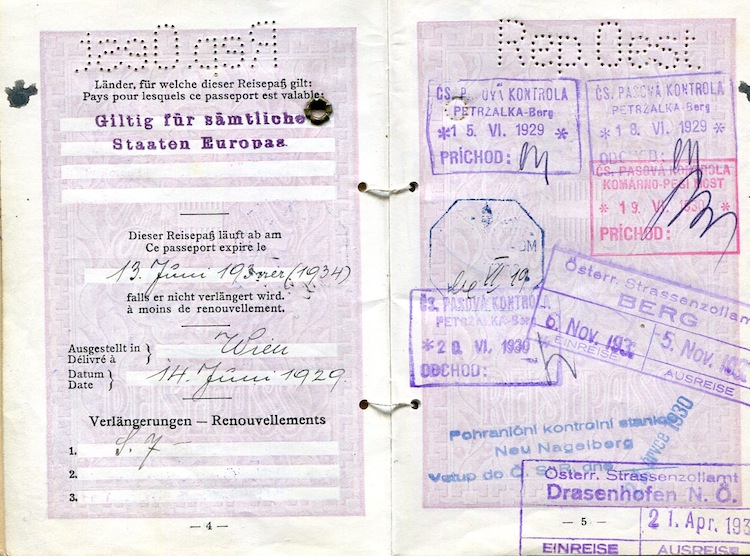 Rep. Oest
Länder, für welche dieser Reisepaß gilt:
Pays pour lesquels ce passeport est valable:
Giltig für sämtliche
Staaten Europas
Dieser Reisepaß läuft ab am
Ce passeport expire le
13. Juni 19 (1934)
falls er nicht verlängert wird.
à moins de renouvellement.
Ausgestellt in }
Délivré à
Wien
Datum }
Date
14. Juni 1929.
Verlängerungen — Renouvellements
1. S. 7
2.
3.
— 4 —
Rep. Oest
ČS. PASOVÁ KONTROLA
PETRŽALKA-Berg
* 15. VI. 1929 *
PŘÍCHOD:
ČS. PASOVÁ KONTROLA
PETRŽALKA-Berg
* 18. VI. 1929 *
ODCHOD:
ČS. PASOVÁ KONTROLA
KOMÁRNO-PEŠÍ MOST
* 19. VI. 1930 *
PŘÍCHOD:
ČS. PASOVÁ KONTROLA
PETRŽALKA-Berg
* 20. VI. 1930 *
ODCHOD:
Österr. Strassenzollamt
BERG
6. Nov. 193
EINREISE
5. Nov. 193
AUSREISE
Pohraniční kontrolní stanice
Neu Nagelberg
Vstup do Č. S. R. dne
1930
Österr. Strassenzollamt
Drasenhofen N. Ö.
21. Apr. 193
EINREISE
AUSREISE
— 5 —